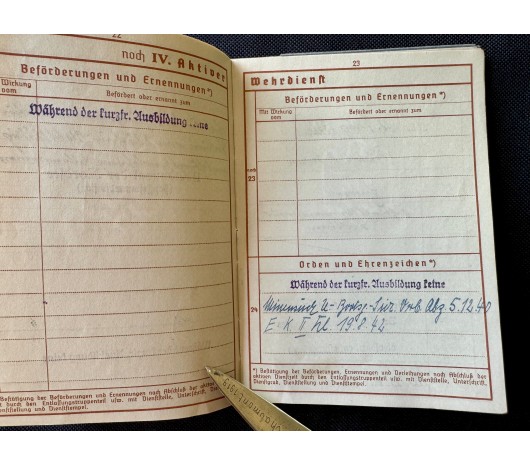 22
noch IV. Aktiver
Beförderungen und Ernennungen*)
Wirkung vom
Befördert oder ernannt zum
Während der kurzfr. Ausbildung keine
*) Bestätigung der Beförderungen und Ernennungen nach Abschluß der aktiven
durch den Entlassungstruppenteil usw. mit Dienststelle, Unterschrift,
Dienststellung und Dienststempel.
23
Wehrdienst
Beförderungen und Ernennungen*)
Mit Wirkung vom
Befördert oder ernannt zum
noch
23
Orden und Ehrenzeichen*)
Während der kurzfr. Ausbildung keine
24
Minensuch U-Bootsj.-Sich. Verb. Abz. 5.12.40
E.K. II Kl. 19.8.42
*) Bestätigung der Beförderungen, Ernennungen und Verleihungen nach Abschluß der
aktiven Dienstzeit durch den Entlassungstruppenteil usw. mit Dienststelle, Unterschrift,
Dienstgrad, Dienststellung und Dienststempel.